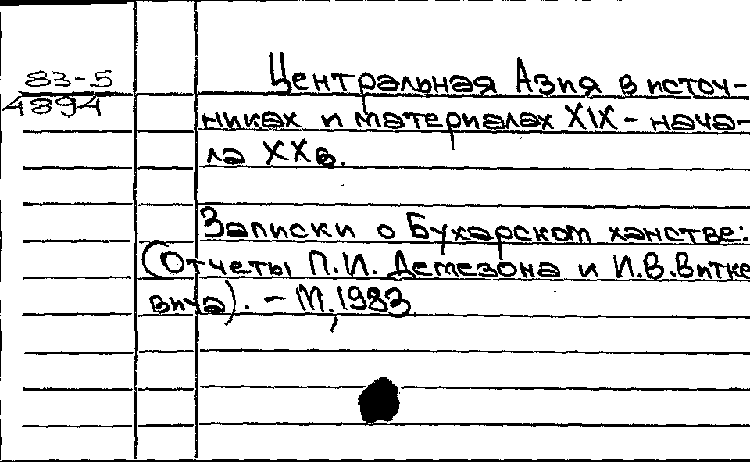 83-5
4894
Центральная Азия в источ-
никах и материалах XIX - нача-
ла XX в.
Записки о Бухарском ханстве:
(Отчеты П.И. Демезона и И.В. Витке
вича). - М., 1983